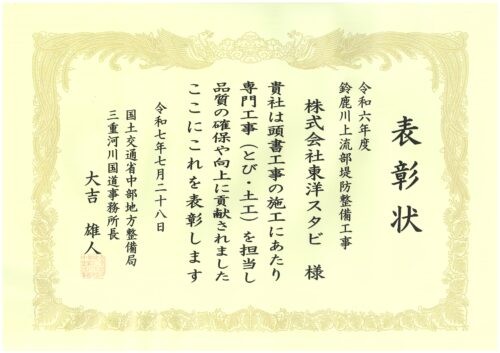 表彰状
令和六年度
鈴鹿川上流部堤防整備工事
株式会社東洋スタビ 様
貴社は頭書工事の施工にあたり
専門工事（とび・土工）を担当し
品質の確保や向上に貢献されました
ここにこれを表彰します
令和七年七月二十八日
国土交通省中部地方整備局
三重河川国道事務所長
大吉 雄人